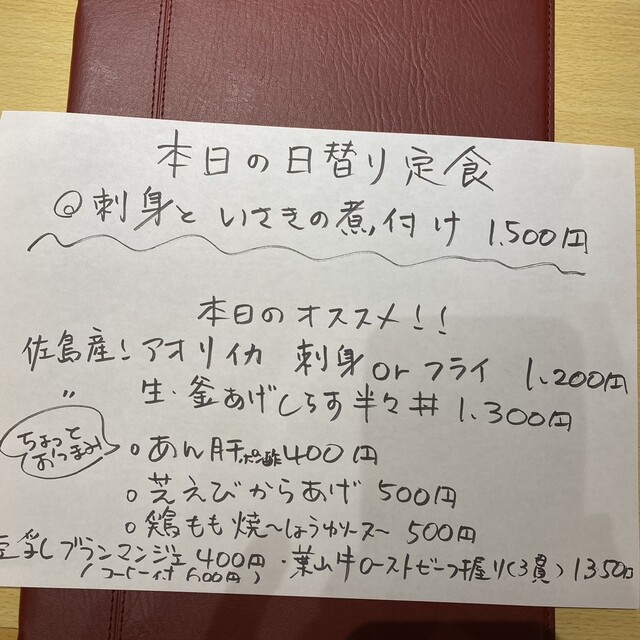 本日の日替り定食
◎刺身といさきの煮付け 1,500円
本日のオススメ!!
佐島産!アオリイカ 刺身 or フライ 1,200円
〃 生・釜あげしらす半々丼 1,300円
ちょっと
おつまみ
○あん肝ポン酢400円
○芝えびからあげ 500円
○鶏もも焼〜しょうゆソース〜 500円
豆乳ブランマンジェ 400円・葉山牛ローストビーフ握り(3貫) 1350円
(コーヒー付 600円)